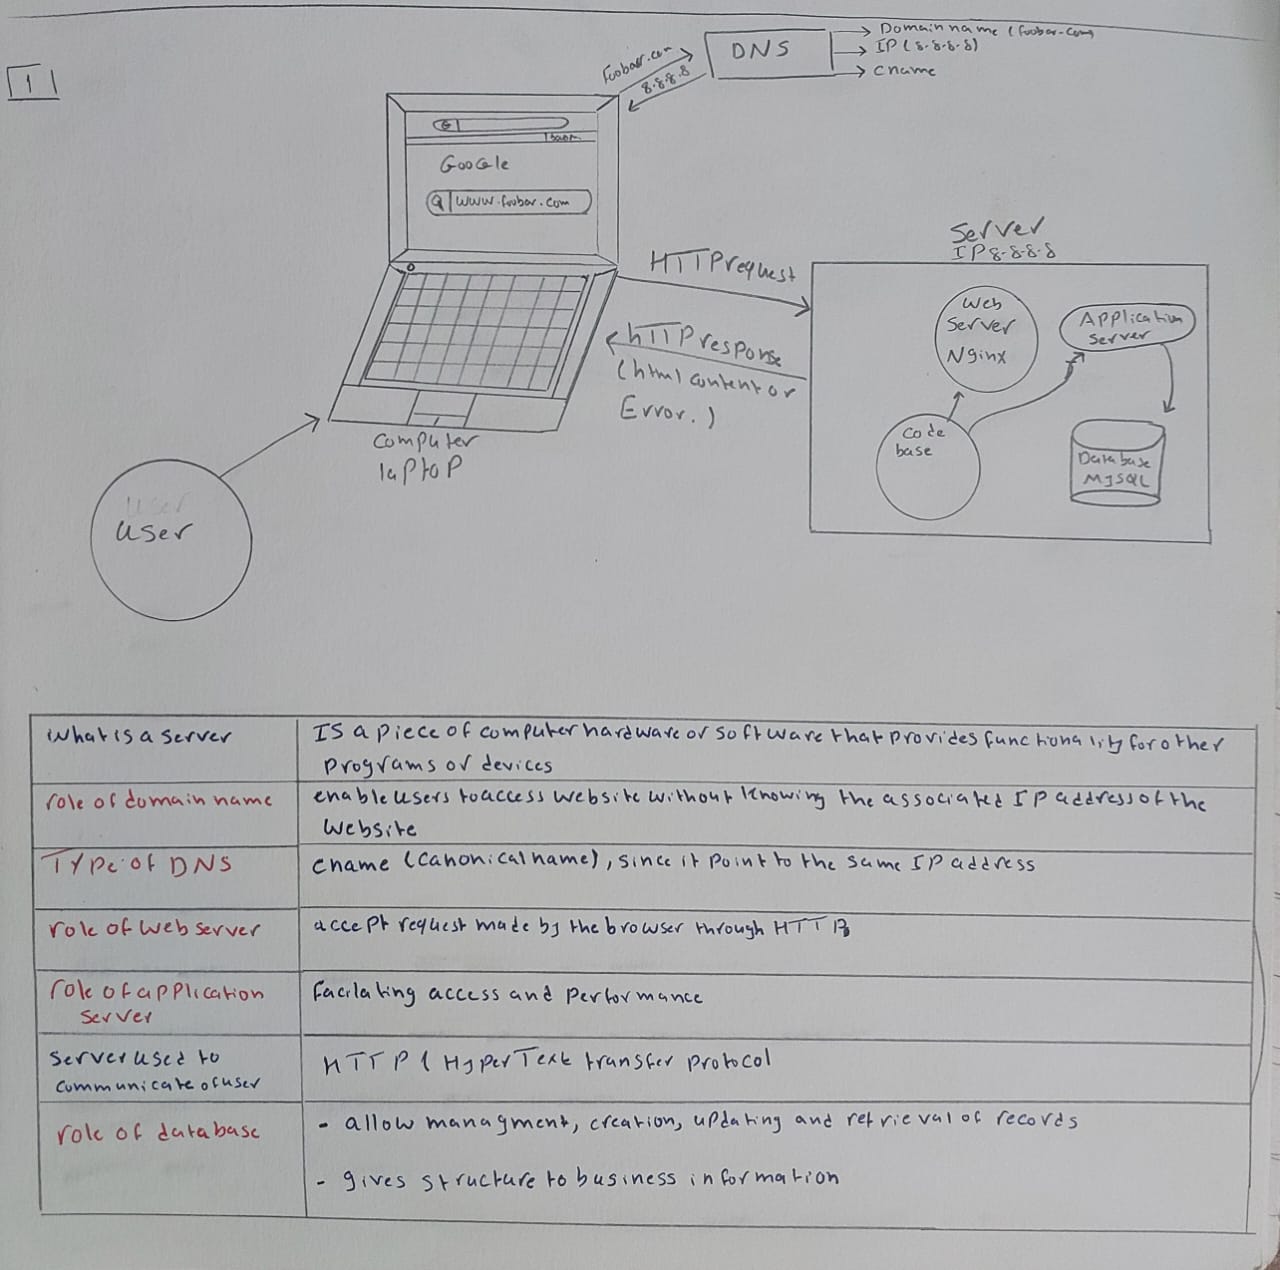 1
Foobar.com
8.8.8.8
DNS
Domain name (foobar.com)
IP (8.8.8.8)
Cname
G
Google
www.foobar.com
HTTP request
hTTP response
(html content or
Error.)
Server
IP 8.8.8.8
Web
Server
Nginx
Application
Server
Code
base
Database
MySQL
Computer
laptop
User
User
What is a server
Is a piece of computer hardware or software that provides functionality for other
programs or devices
role of domain name
enable users to access website without knowing the associated IP address of the
website
Type of DNS
cname (canonical name), since it point to the same IP address
role of web server
accept request made by the browser through HTTP
role of application
server
Facilating access and performance
server used to
communicate of user
HTTP (HyperText transfer protocol
role of database
- allow managment, creation, updating and retrieval of records
- gives structure to business information